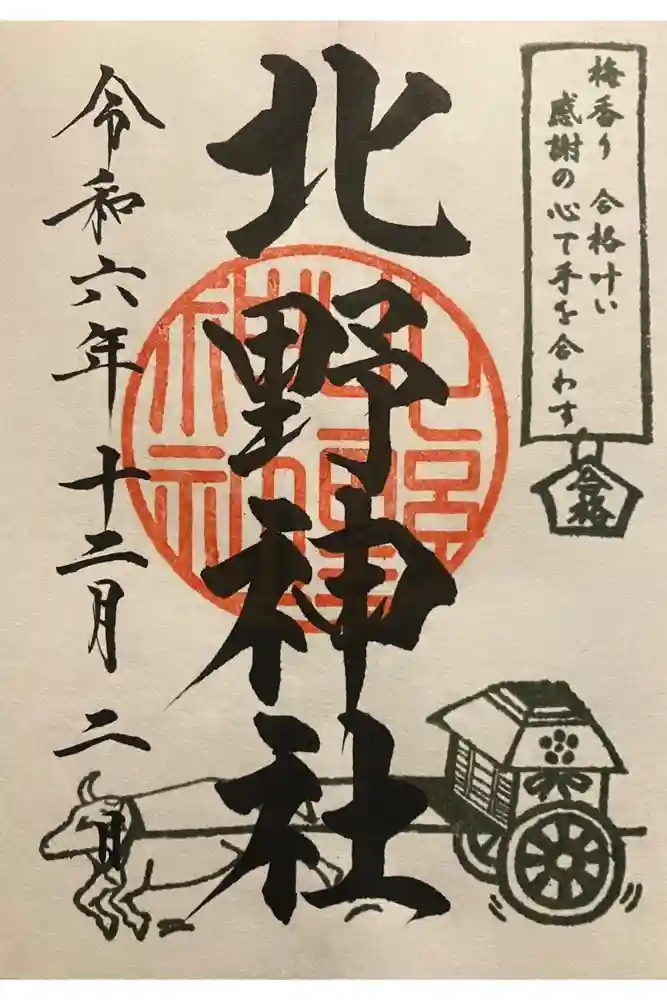 梅香り 合格叶い
感謝の心で手を合わす
合格
北野神社
北野神社
令和六年十二月二日